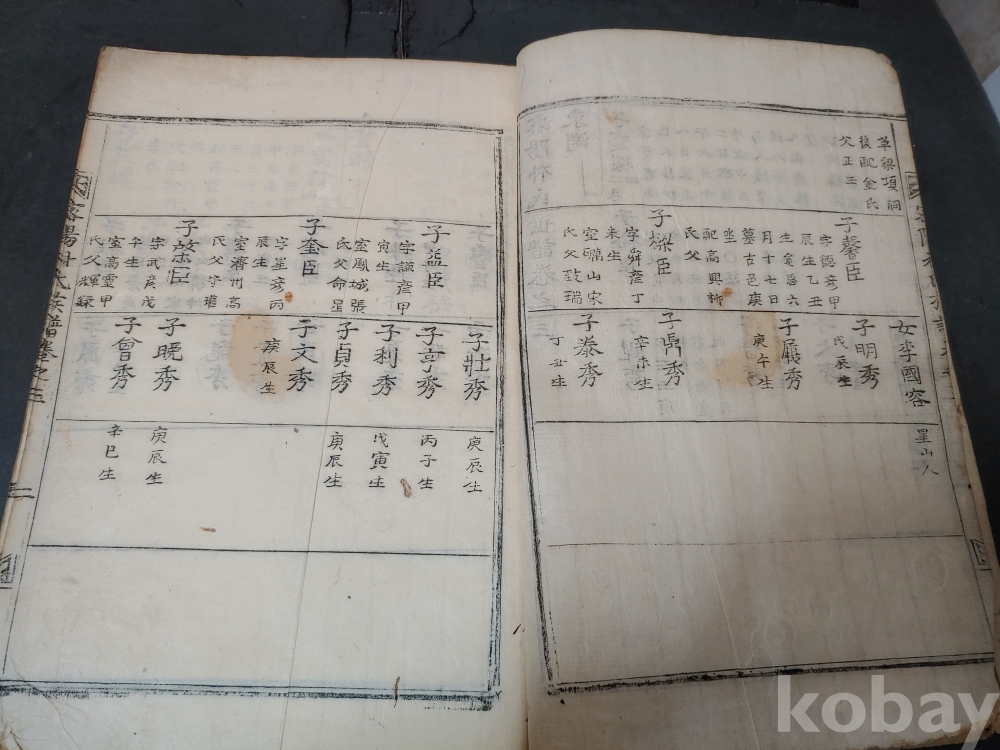 梁項洞
後配金氏
父正玉
子馨臣
字德彦甲
辰生乙丑
月十七日
墓古邑庚
坐〇
配高興柳
氏父
臣
字舜彦丁
未生
室礪山宋
氏父致瑞
女李國容
子明秀
戊辰生
子履秀
庚午生
子禹秀
辛未生
子泰秀
丁丑生
星山人
子益臣
字謙彦甲
寅生
室鳳城張
氏父命星
子奎臣
字星彦丙
辰生
室濟州高
氏父守權
子棨臣
字武彦戊
午生
室高靈申
氏父輝錄
子壯秀
子亨秀
子利秀
子貞秀
子文秀
庚辰生
子曉秀
子會秀
庚辰生
丙子生
戊寅生
庚辰生
庚辰生
辛巳生
密陽朴氏族譜卷之五
二
kobay